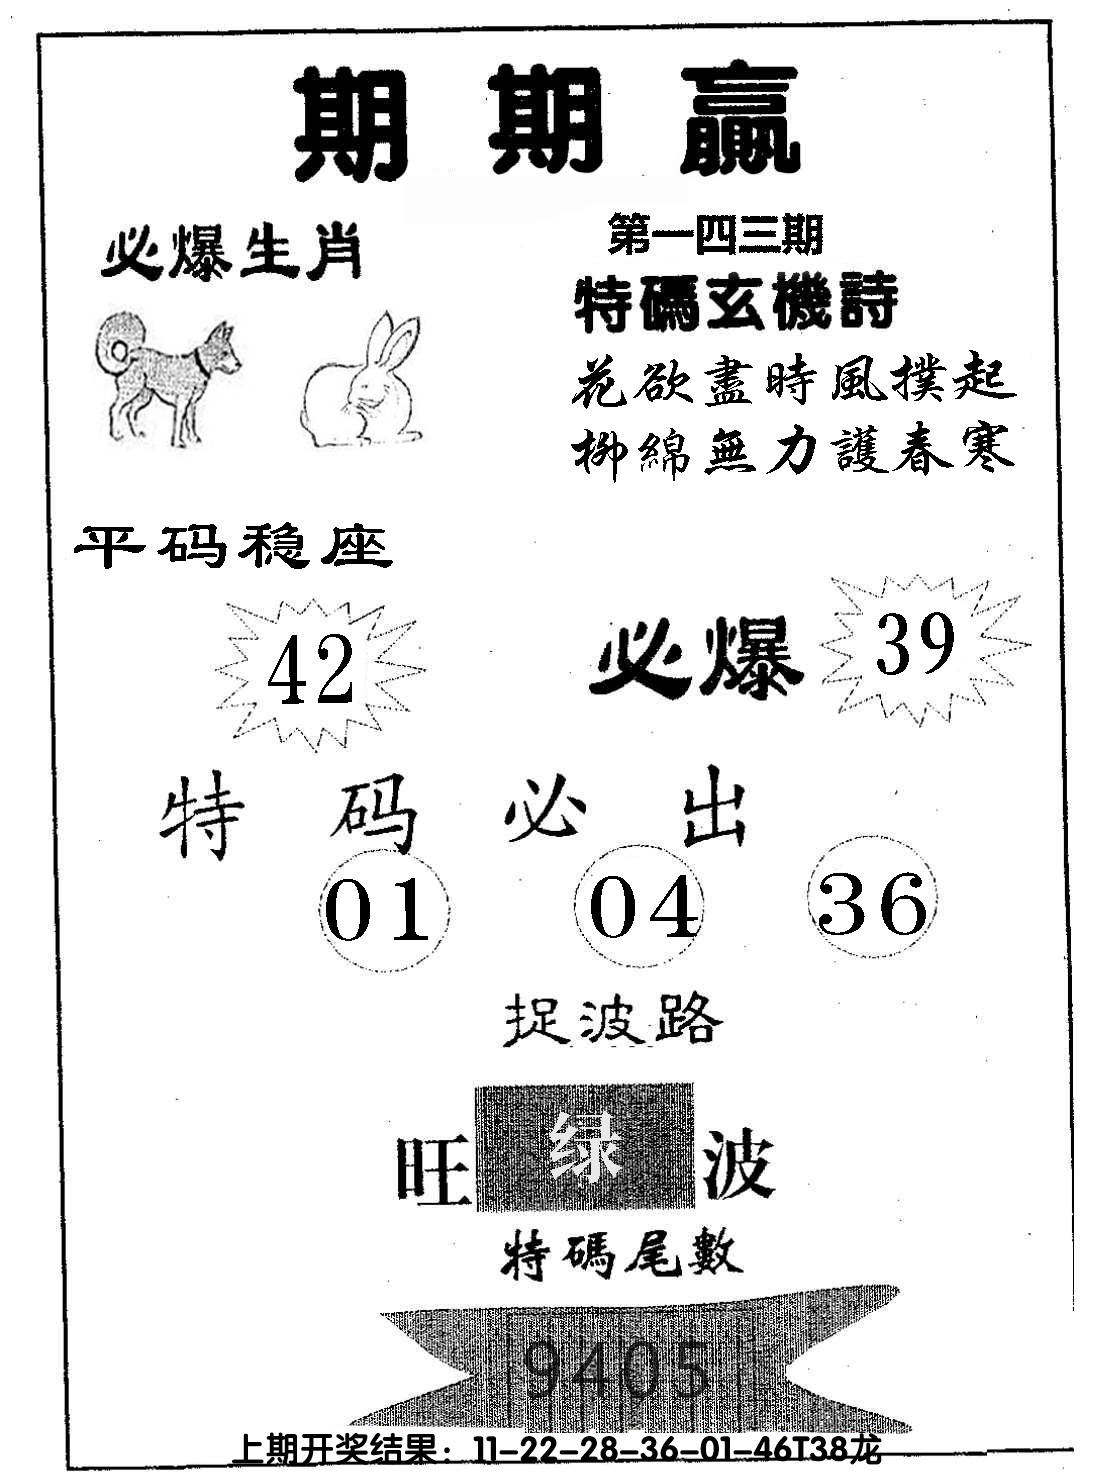 期期贏
必爆生肖
第一四三期
特碼玄機詩
花欲盡時風撲起
柳綿無力護春寒
平码稳座
42
必爆 39
特码必出
01 04 36
捉波路
旺 绿 波
特碼尾數
9405
上期开奖结果：11-22-28-36-01-46T38龙